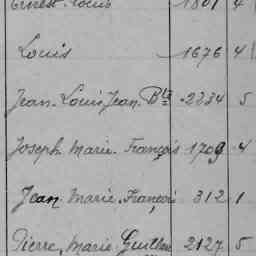 Ernest Louis 1801 4
Louis 1676 4
Jean Louis Jean Bte 2334 5
Joseph Marie François 1709 4
Jean Marie François 312 1
Pierre Marie Guillme 2127 5